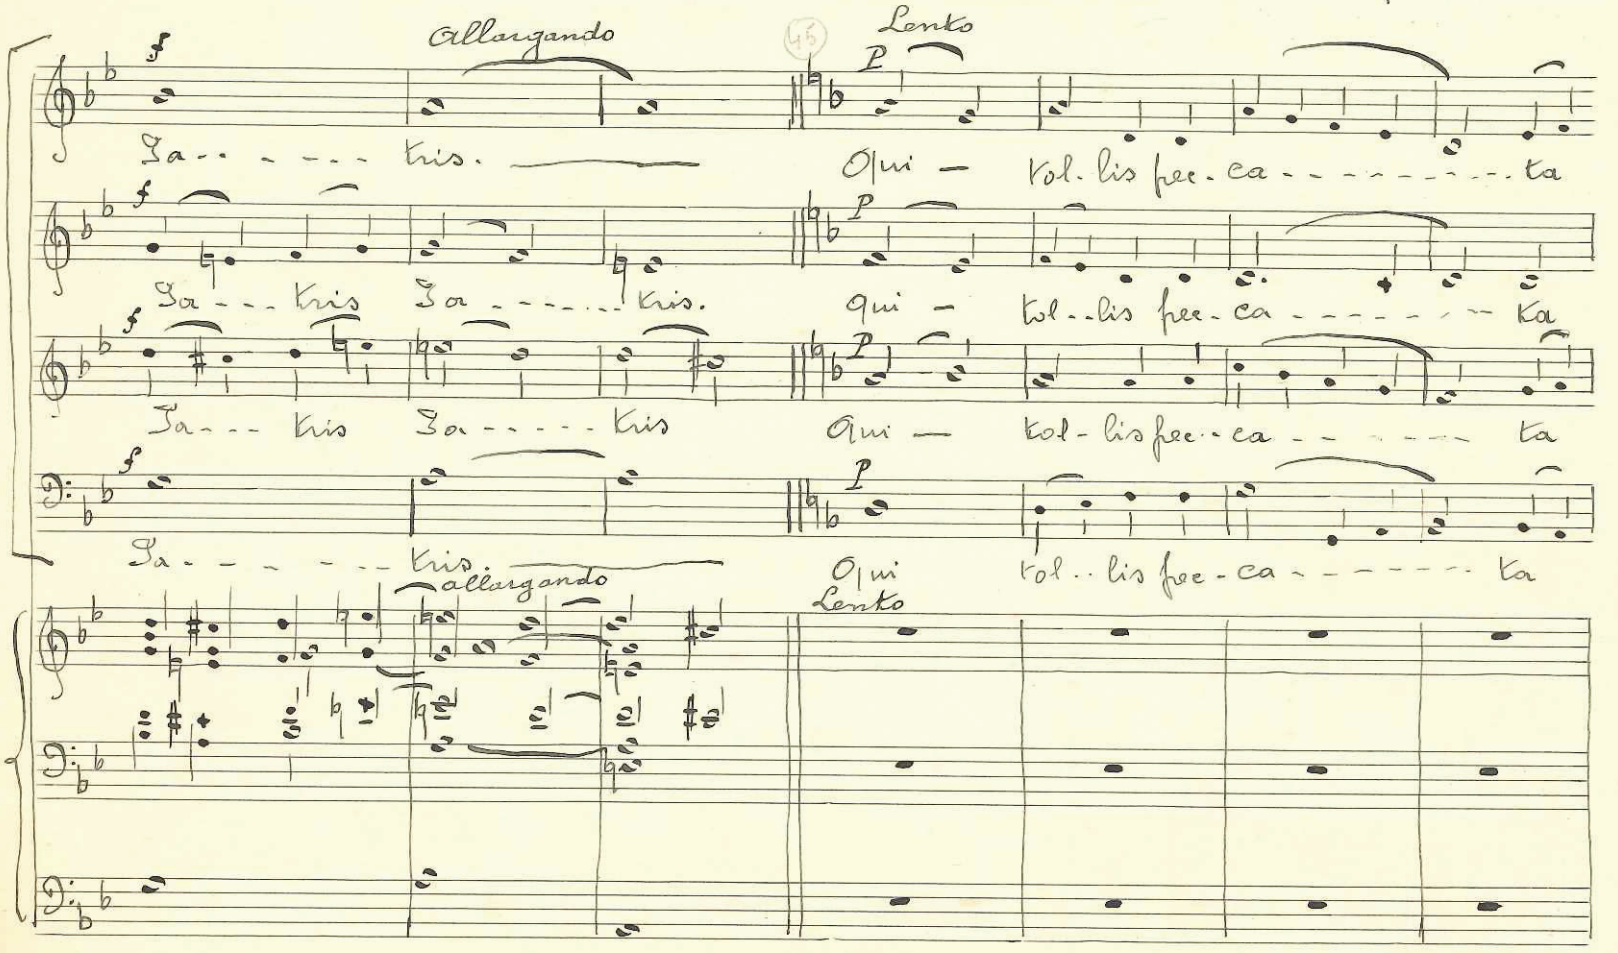 f Allargando 45 Lento P
Pa-- - --- tris. Qui - tol-lis pec-ca - - - - - - - - ta
f P
Pa --- tris Pa - - - - - - tris. qui - tol--lis pec-ca - - - - - - - - ta
f P
Pa --- tris Pa - - - - - tris Qui - tol-lis pec--ca - - - - - - - ta
f P
Pa - - - - - -- tris. Qui tol--lis pec-ca - - - - - - - ta
allargando Lento